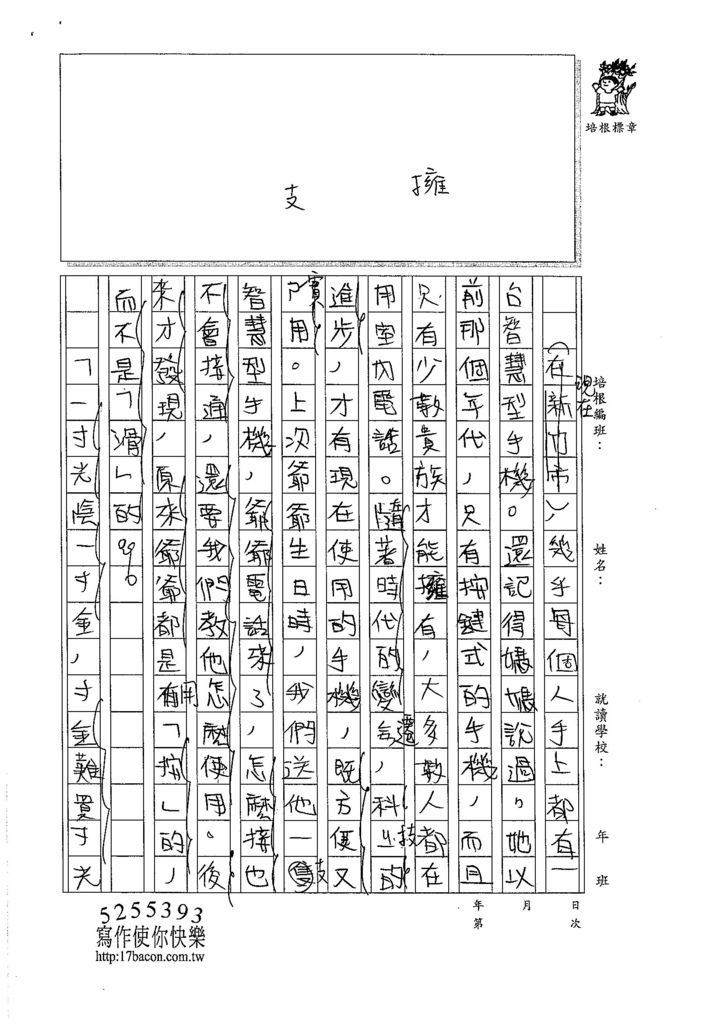 擁
支
培根標章
(在新竹市),幾乎每個人手上都有一
現在
台智慧型手機。還記得媽媽說過,她以
前那個年代,只有按鍵式的手機,而且
只有少數貴族才能擁有,大多數人都在
用室內電話。隨著時代的變遷,科技的
進步,才有現在使用的手機,既方便又
實用。上次爺爺生日時,我們送他一隻
支
智慧型手機,爺爺電話來了,怎麼接也
不會接通,還要我們教他怎麼使用。後
來才發現,原來爺爺都是用「按」的,
而不是「滑」的呢。
「一寸光陰一寸金,寸金難買寸光
培根編班:
姓名:
就讀學校:
年 班
年 月 日
第 次
5255393
寫作使你快樂
http:17bacon.com.tw